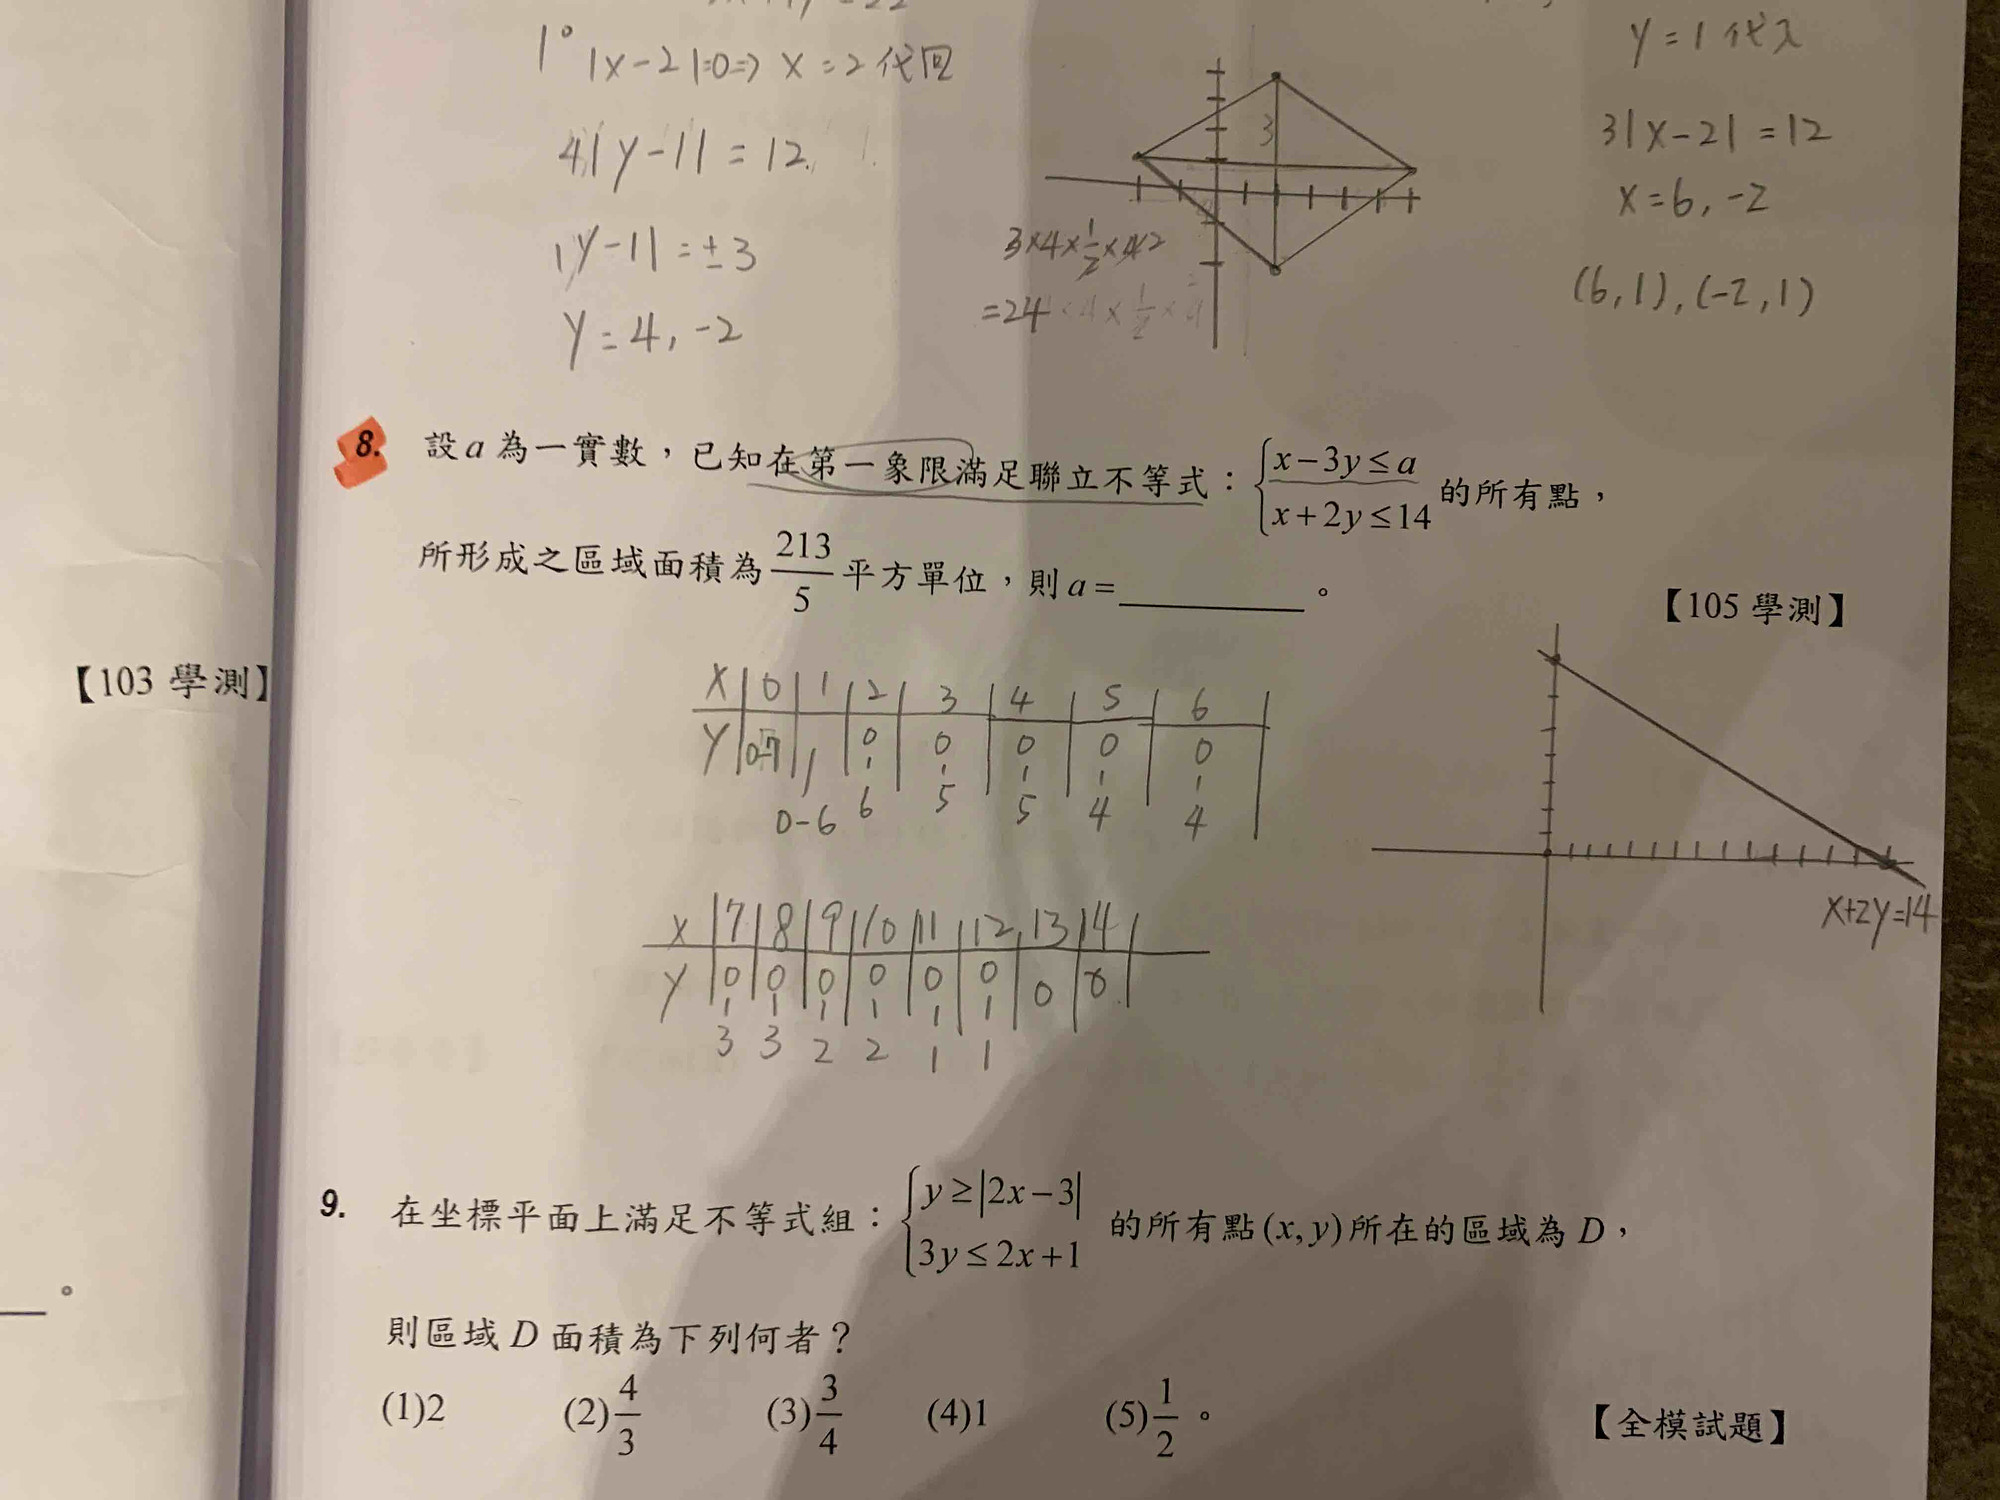 1° |x-2|=0⇒ x=2 代回
4|y-1| = 12
|y-1| = ±3
y = 4, -2
3
3×4×1/2×4×2
=24
y = 1 代入
3|x-2| = 12
x = 6, -2
(6,1), (-2,1)
8. 設a為一實數，已知在第一象限滿足聯立不等式：{x-3y≤a
x+2y≤14 的所有點，
所形成之區域面積為213/5平方單位，則a=________。
【105 學測】
【103 學測】
x 0 1 2 3 4 5 6
y 0-7 0-6 0-6 0-5 0-5 0-4 0-4
x+2y=14
x 7 8 9 10 11 12 13 14
y 0-3 0-3 0-2 0-2 0-1 0-1 0 0
9. 在坐標平面上滿足不等式組：{y≥|2x-3|
3y≤2x+1 的所有點(x,y)所在的區域為D，
則區域D面積為下列何者？
(1)2 (2)4/3 (3)3/4 (4)1 (5)1/2。
【全模試題】